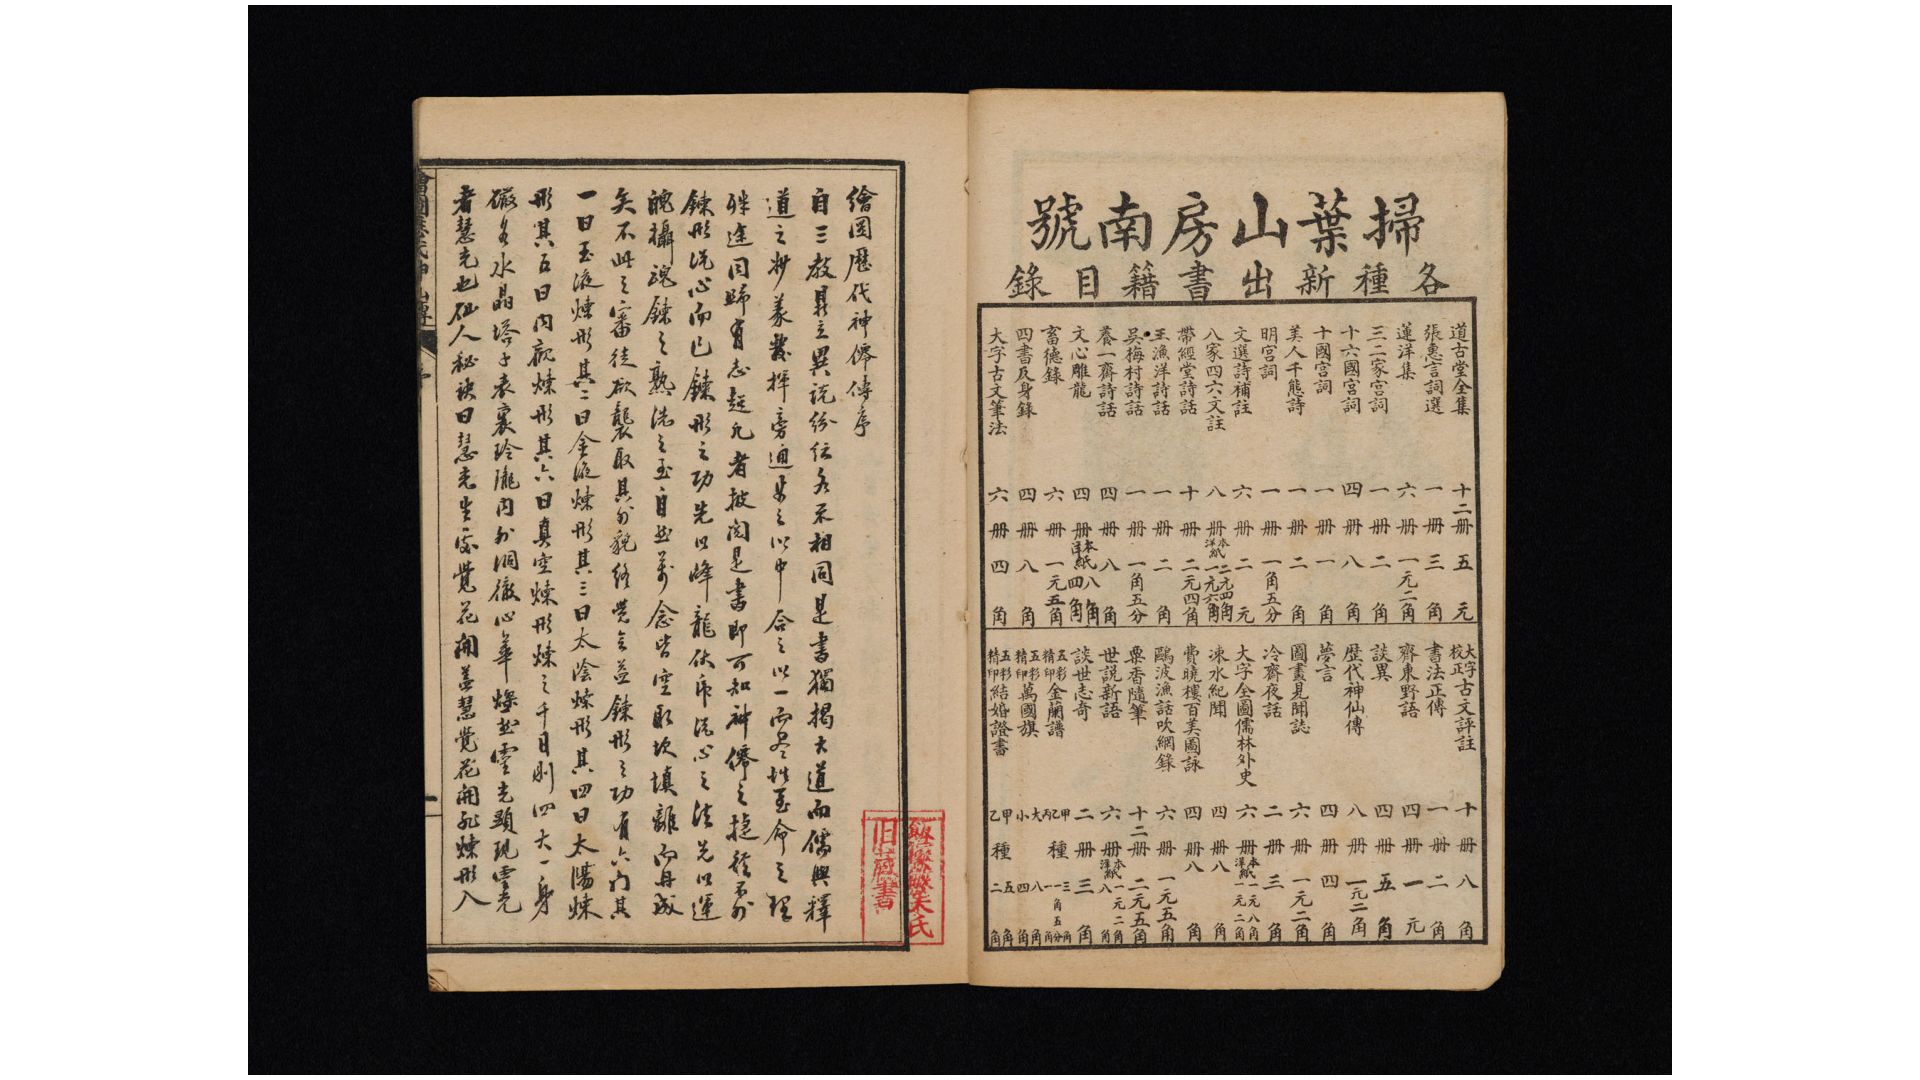 掃葉山房南號
各種新出書籍目錄
道古堂全集 十二册 五元
張惠言詞選 一册 三角
蓮洋集 六册 一元二角
三二家宮詞 一册 二角
十六國宮詞 四册 八角
十國宮詞 一册 一角
美人千態詩 一册 二角
明宮詞 一册 一角五分
文選詩補註 六册 二元
八家四六文註 八册 本紙二元四角 洋紙一元六角
帶經堂詩話 十册 二元四角
王漁洋詩話 一册 二角
吳梅村詩話 一册 一角五分
養一齋詩話 四册 八角
文心雕龍 四册 本紙八角 洋紙四角
畜德錄 六册 一元五角
四書反身錄 四册 八角
大字古文筆法 六册 四角
大字校正古文評註 十册 八角
書法正傳 一册 二角
齊東野語 四册 一元
談異 四册 五角
歷代神仙傳 八册 一元二角
夢言 四册 四角
圖畫見聞誌 六册 一元二角
冷齋夜話 二册 三角
大字全圖儒林外史 六册 本紙一元八角 洋紙一元二角
涑水紀聞 四册 八角
費曉樓百美圖詠 四册 八角
鷗波漁話吹網錄 六册 一元五角
粟香隨筆 十二册 二元五角
世說新語 六册 本紙一元二角 洋紙八角
談世志奇 二册 三角
五彩精印金蘭譜 甲乙丙種 三角 一角五分 一角
五彩精印萬國旗 大小 八角 四角
五彩精印結婚證書 甲乙種 五角 二角
繪圖歷代神僊傳序
自三教鼎立異說紛紜各不相同是書獨揭大道而儒與釋
道之妙義發揮旁通要之以中合之以一而盡性至命之理
殊途同歸有志超凡者披閱是書即可知神僊之捷徑不外
鍊形洗心而已鍊形之功先以降龍伏虎洗心之法先以運
魄攝魂鍊之熟洗之至自然萬念皆空取坎填離而丹成
矣不此之審徒欲襲取其外貌終覺無益鍊形之功有六門其
一曰玉液煉形其二曰金液煉形其三曰太陰煉形其四曰太陽煉
形其五曰內觀煉形其六曰真空煉形煉之千日則四大一身
儼若水晶塔子表裏玲瓏內外洞徹心華燦然靈光顯現靈光
者慧光也仙人秘訣曰慧光生處覺花開蓋慧覺花開非煉形入
旧藏書
朱氏